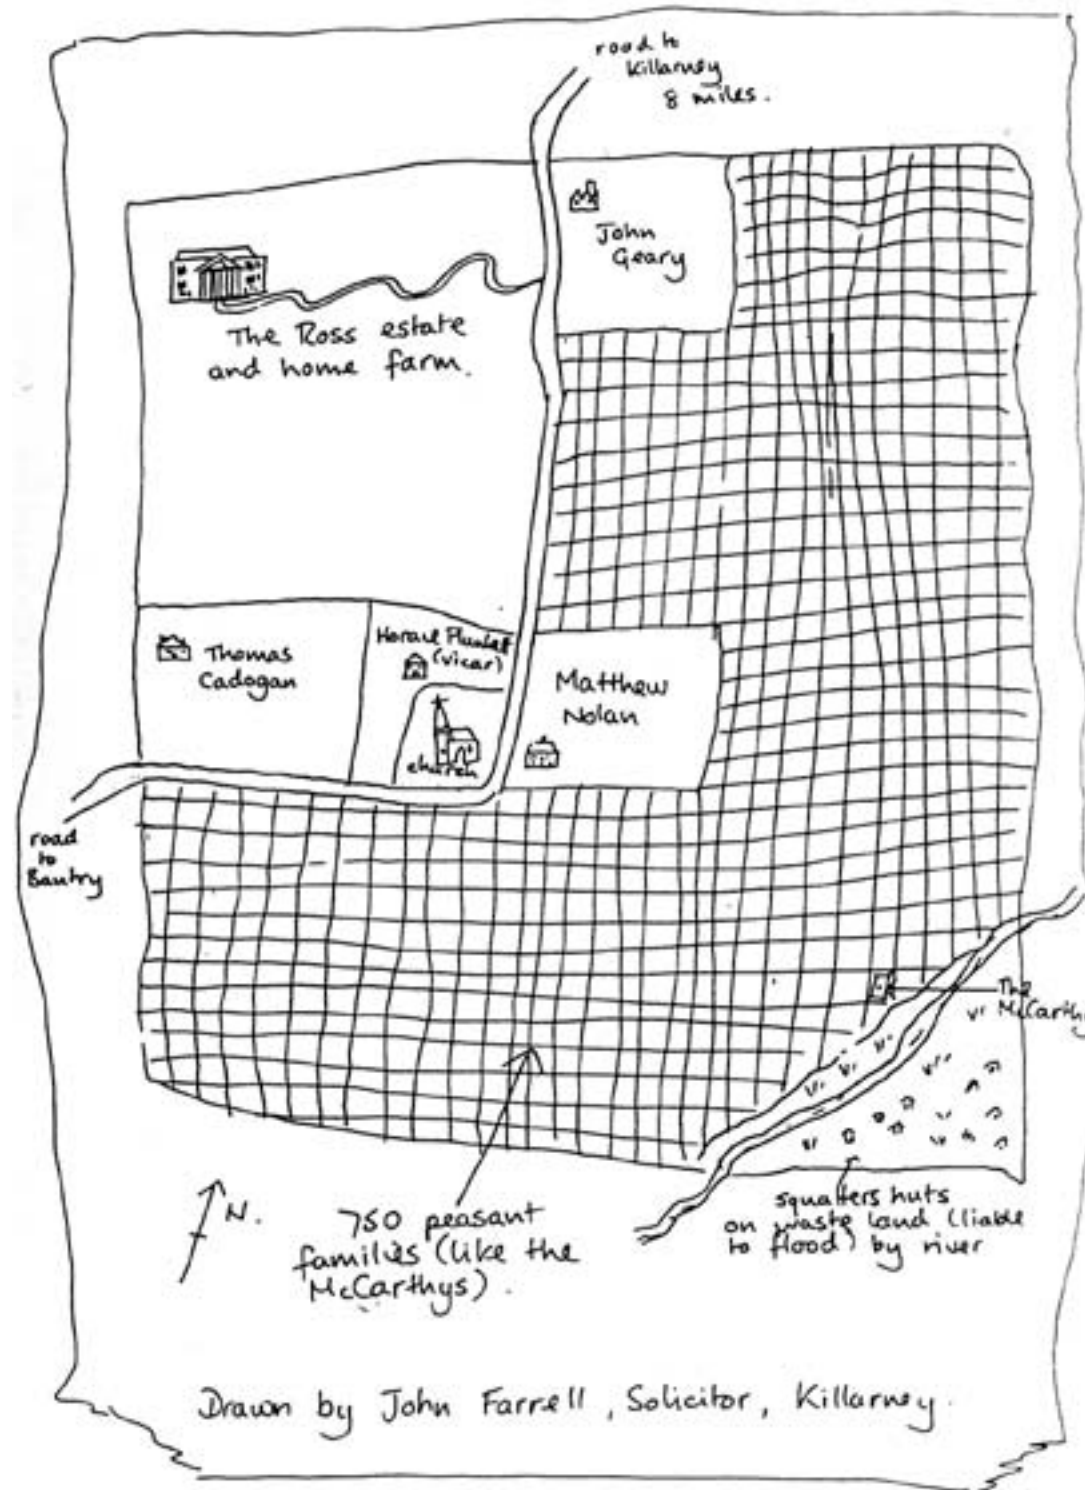 road to
Killarney
8 miles.
John
Geary
The Ross estate
and home farm.
Thomas
Cadogan
Horace Plunket
(vicar)
church
Matthew
Nolan
road
to
Bantry
The
McCarthy
N.
750 peasant
families (like the
McCarthys).
squatters huts
on waste land (liable
to flood) by river
Drawn by John Farrell, Solicitor, Killarney.